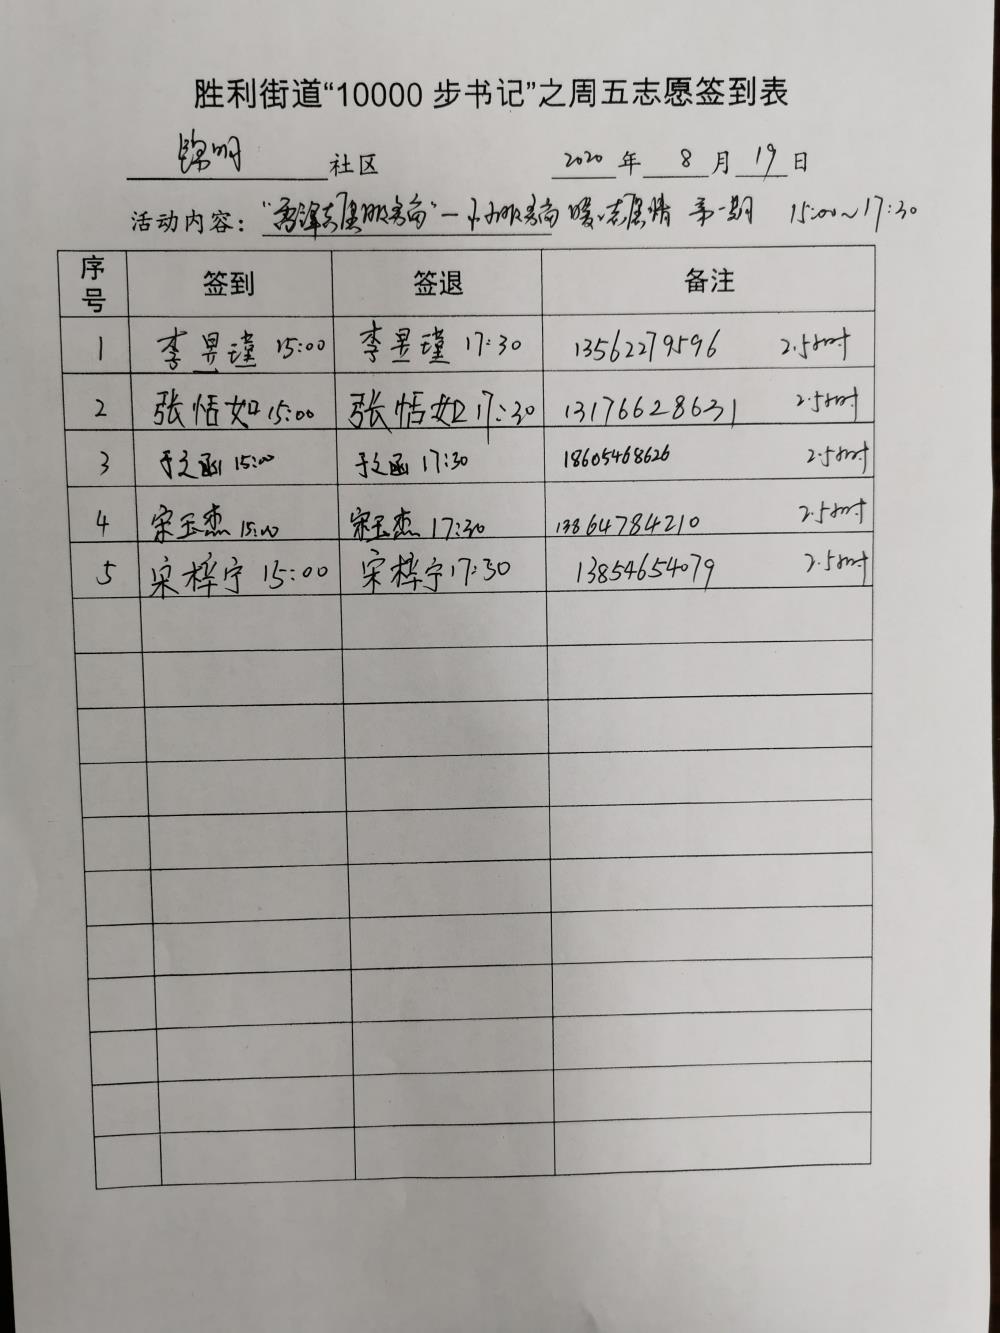 胜利街道“10000 步书记”之周五志愿签到表
锦明 社区 2020 年 8 月 19 日
活动内容：“志愿服务岗”一小小服务岗 暖心志愿情 第一期 15:00~17:30
序号 签到 签退 备注
1 李昱瑾 15:00 李昱瑾 17:30 13562279596 2.5小时
2 张恬如 15:00 张恬如 17:30 13176628631 2.5小时
3 于文函 15:00 于文函 17:30 18605468626 2.5小时
4 宋玉杰 15:00 宋玉杰 17:30 13864784210 2.5小时
5 宋桦宁 15:00 宋桦宁 17:30 13854654079 2.5小时